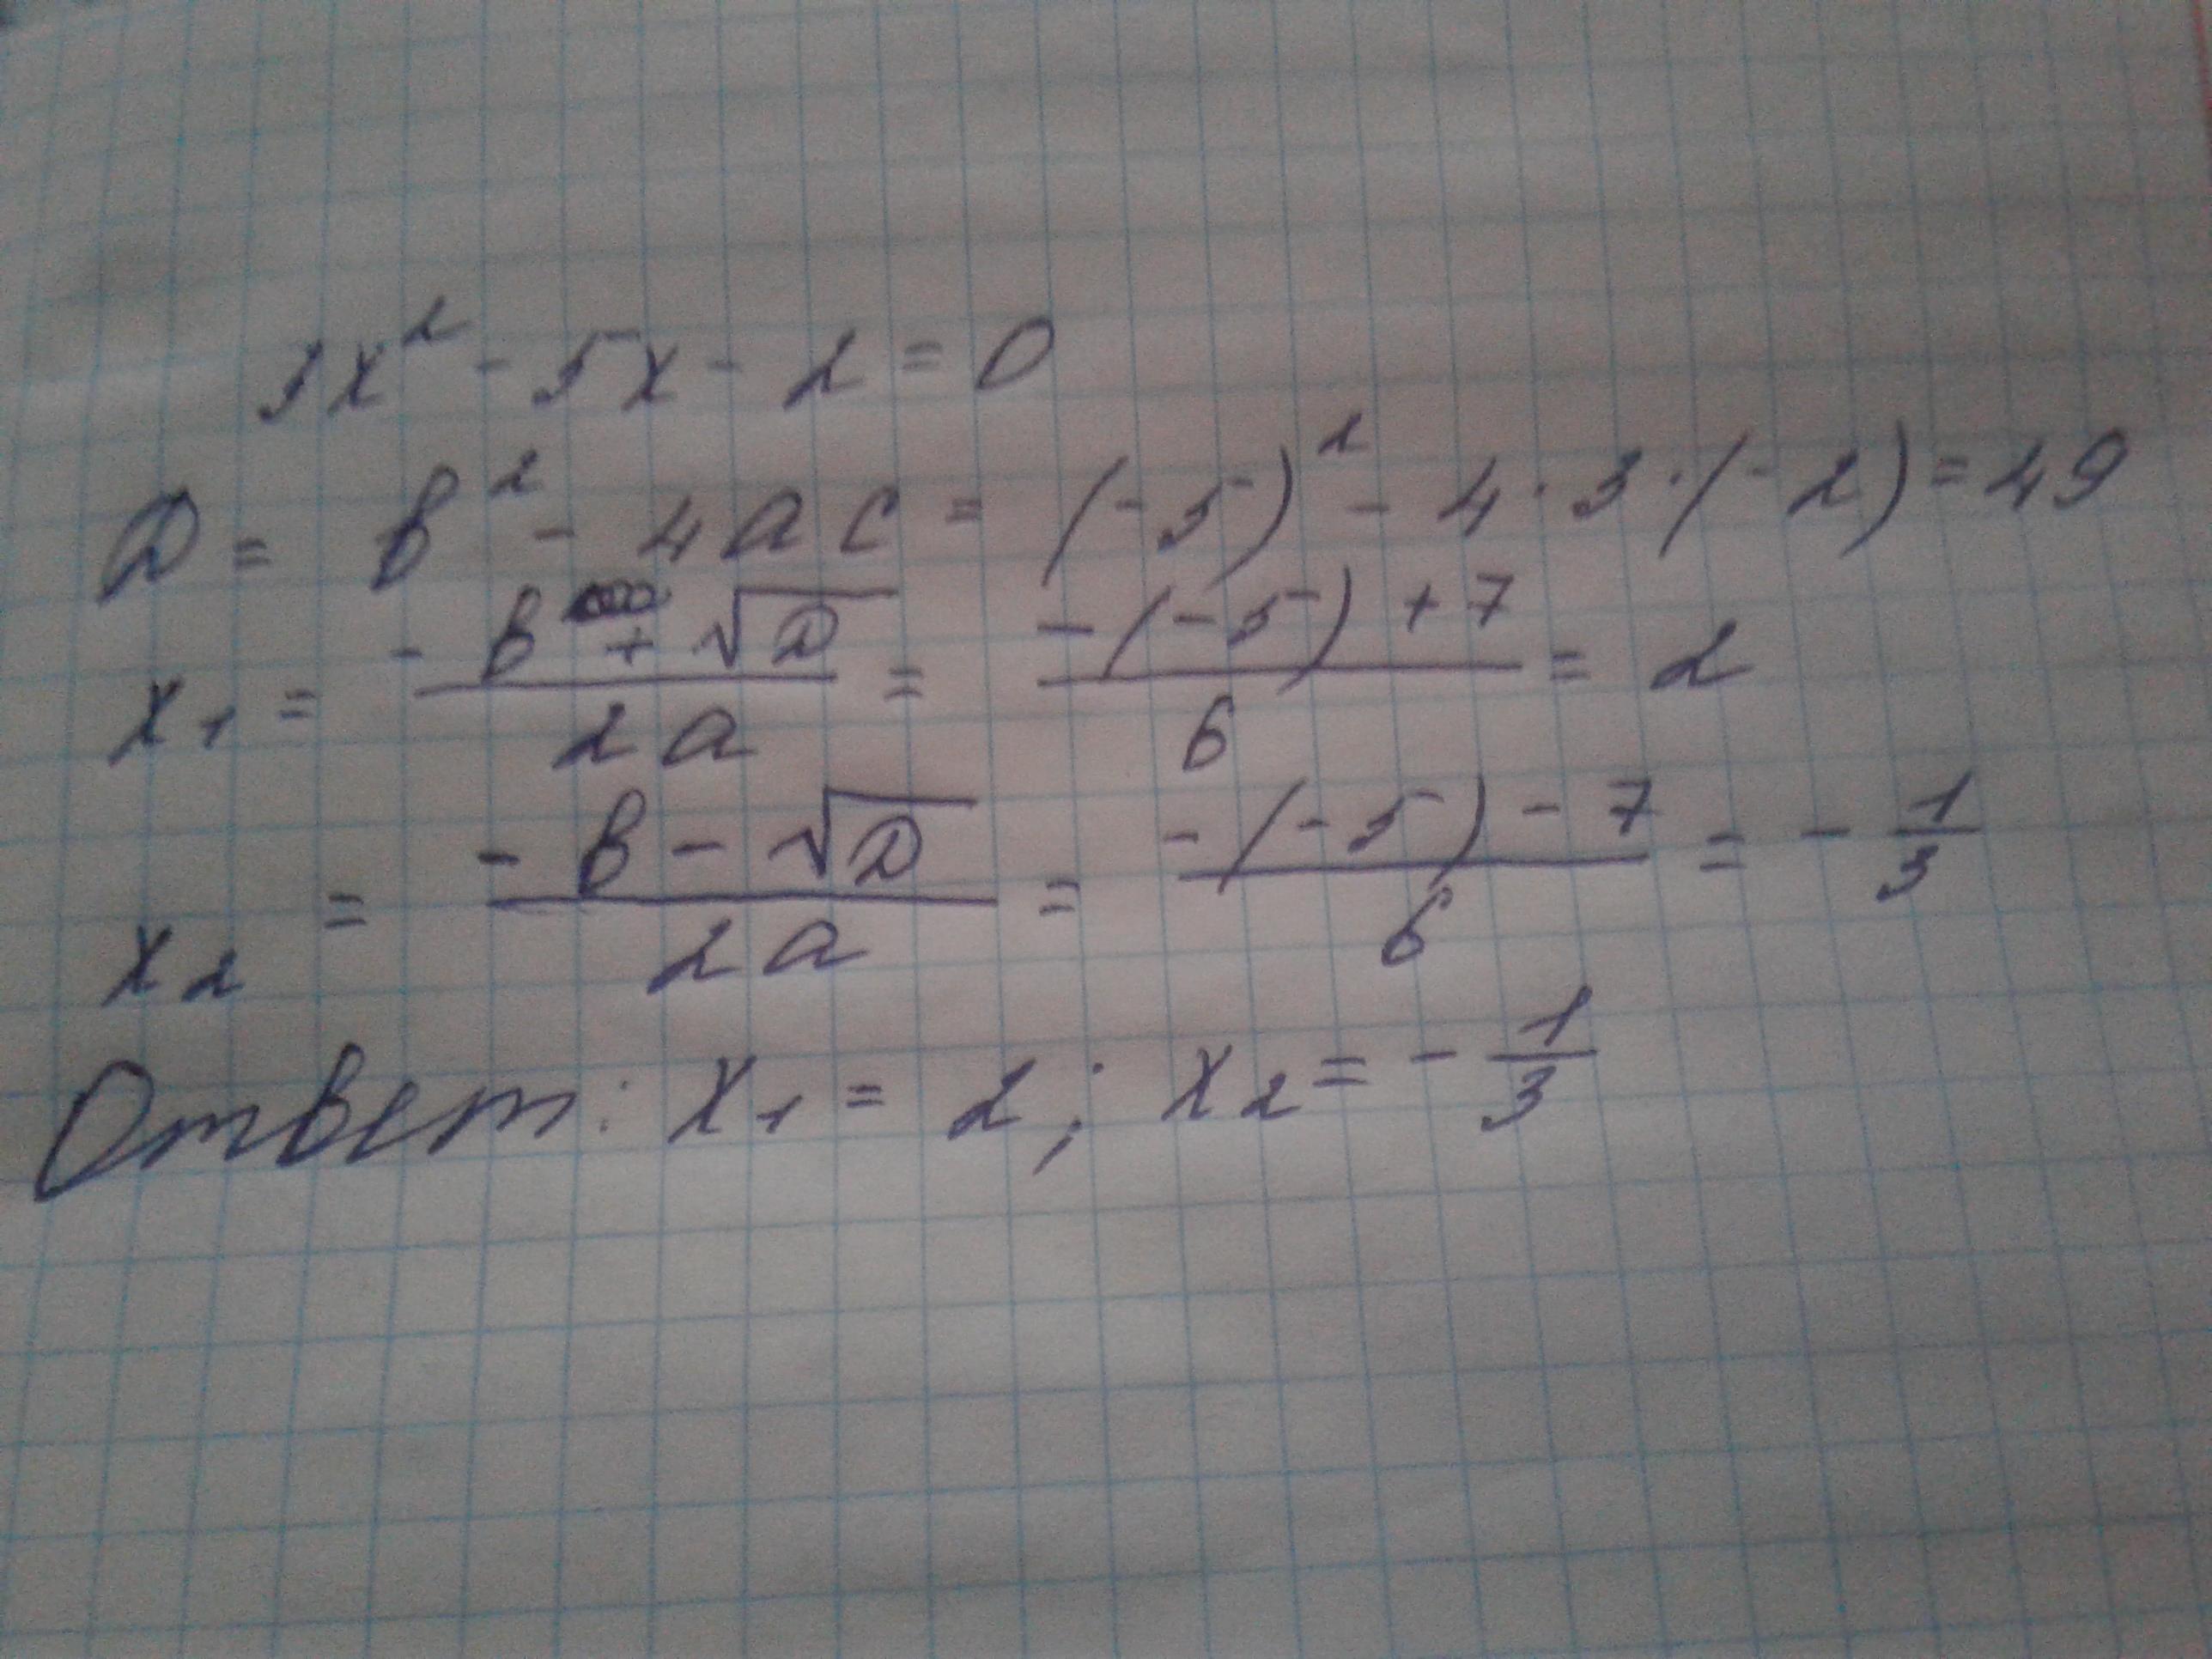 3x² - 5x - 2 = 0
D = b² - 4ac = (-5)² - 4·3·(-2) = 49
x₁ = (-b + √D)/(2a) = (-(-5) + 7)/6 = 2
x₂ = (-b - √D)/(2a) = (-(-5) - 7)/6 = -1/3
Ответ: x₁ = 2; x₂ = -1/3